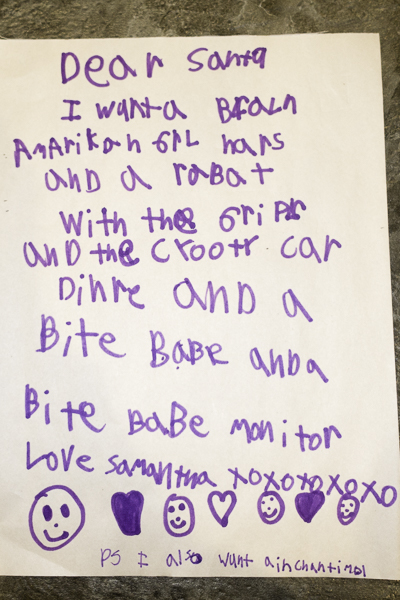 Dear Santa
I want a Braln
Amarikan GrL hars
and a rabat
With the Gripr
and the Crootr car
Dinre and a
Bite BaBe anda
Bite BaBe monitor
Love samantha xoxoxoxoxo
PS I also want ainchantimol